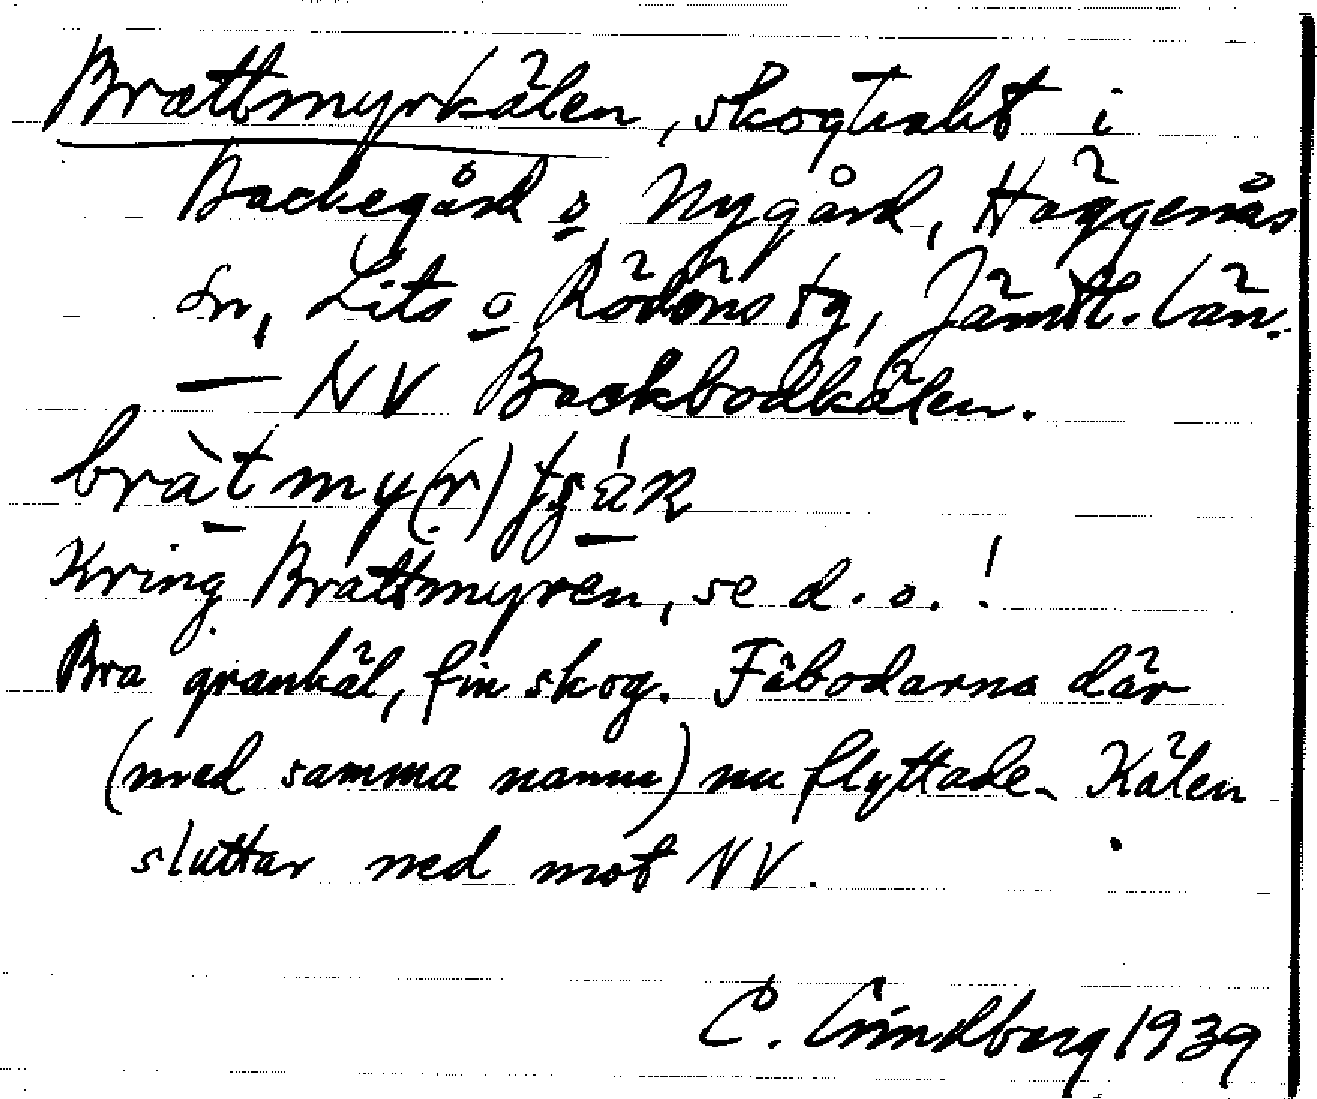 Brattmyrkälen, skogtrakt i
Backegård o Nygård, Häggenås
sn, Lits o Rödöns tg, Jämtl. län.
— NV Backbodkälen.
bràtmy(r)
Kring Brattmyren, se d. o. !
Bra grankäl, fin skog. Fäbodarna där
(med samma namn) nu flyttade. Kälen
sluttar ned mot NV.
C. Lindberg 1939